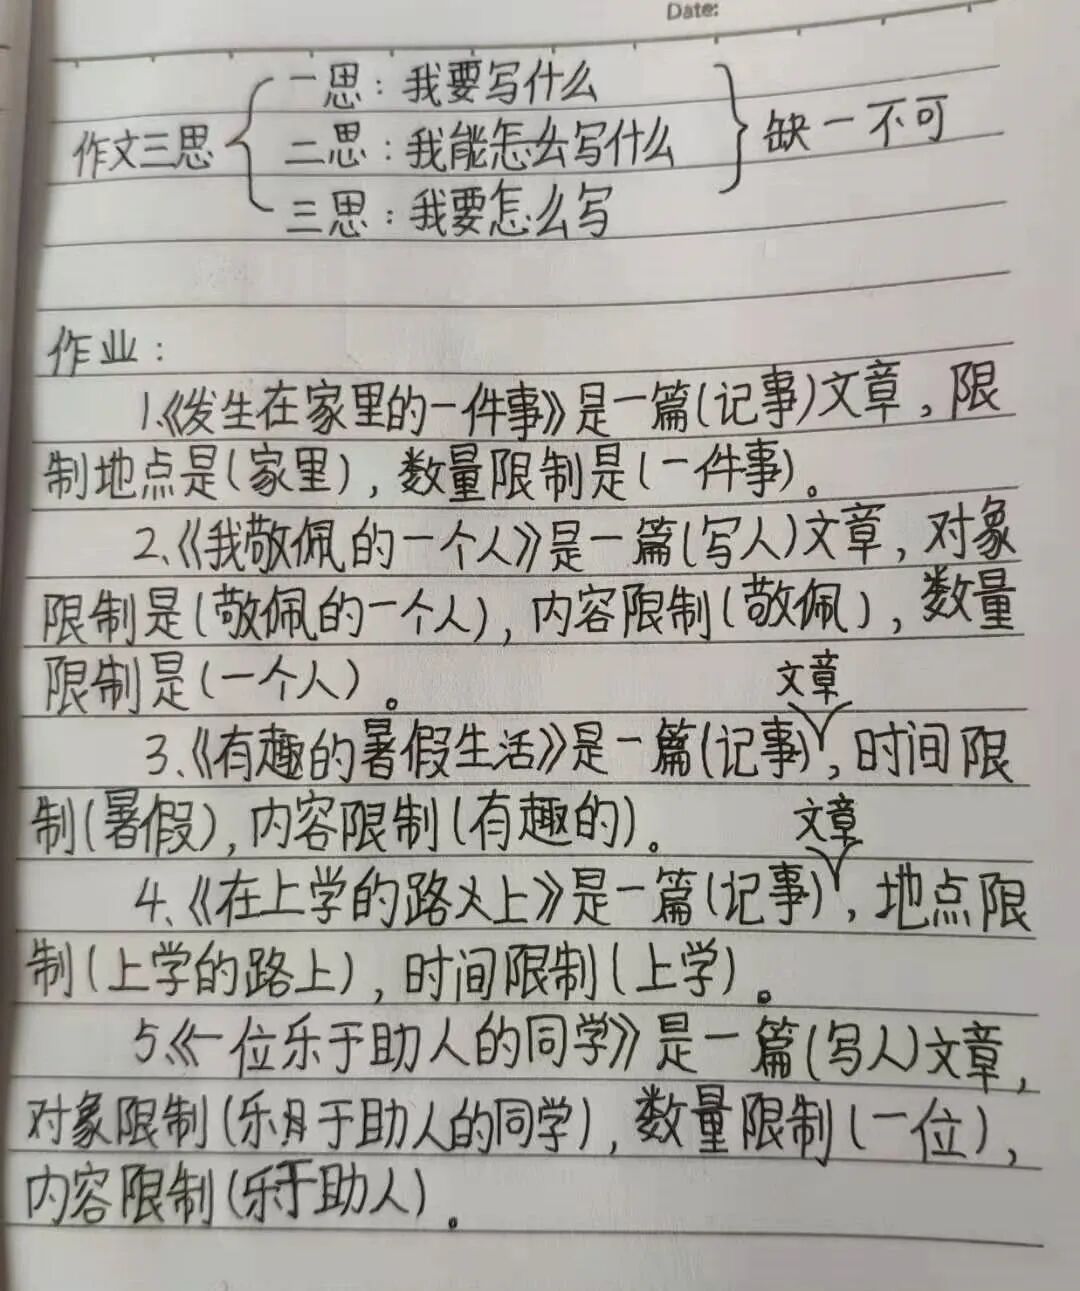 Date:
一思：我要写什么
作文三思 二思：我能怎么写什么 缺一不可
三思：我要怎么写
作业：
1.《发生在家里的一件事》是一篇(记事)文章，限
制地点是(家里)，数量限制是(一件事)。
2、《我敬佩的一个人》是一篇(写人)文章，对象
限制是(敬佩的一个人)，内容限制(敬佩)，数量
限制是(一个人)。
文章
3、《有趣的暑假生活》是一篇(记事)，时间限
制(暑假)，内容限制(有趣的)。
文章
4、《在上学的路上》是一篇(记事)，地点限
制(上学的路上)，时间限制(上学)。
5、《一位乐于助人的同学》是一篇(写人)文章，
对象限制(乐于助人的同学)，数量限制(一位)，
内容限制(乐于助人)。